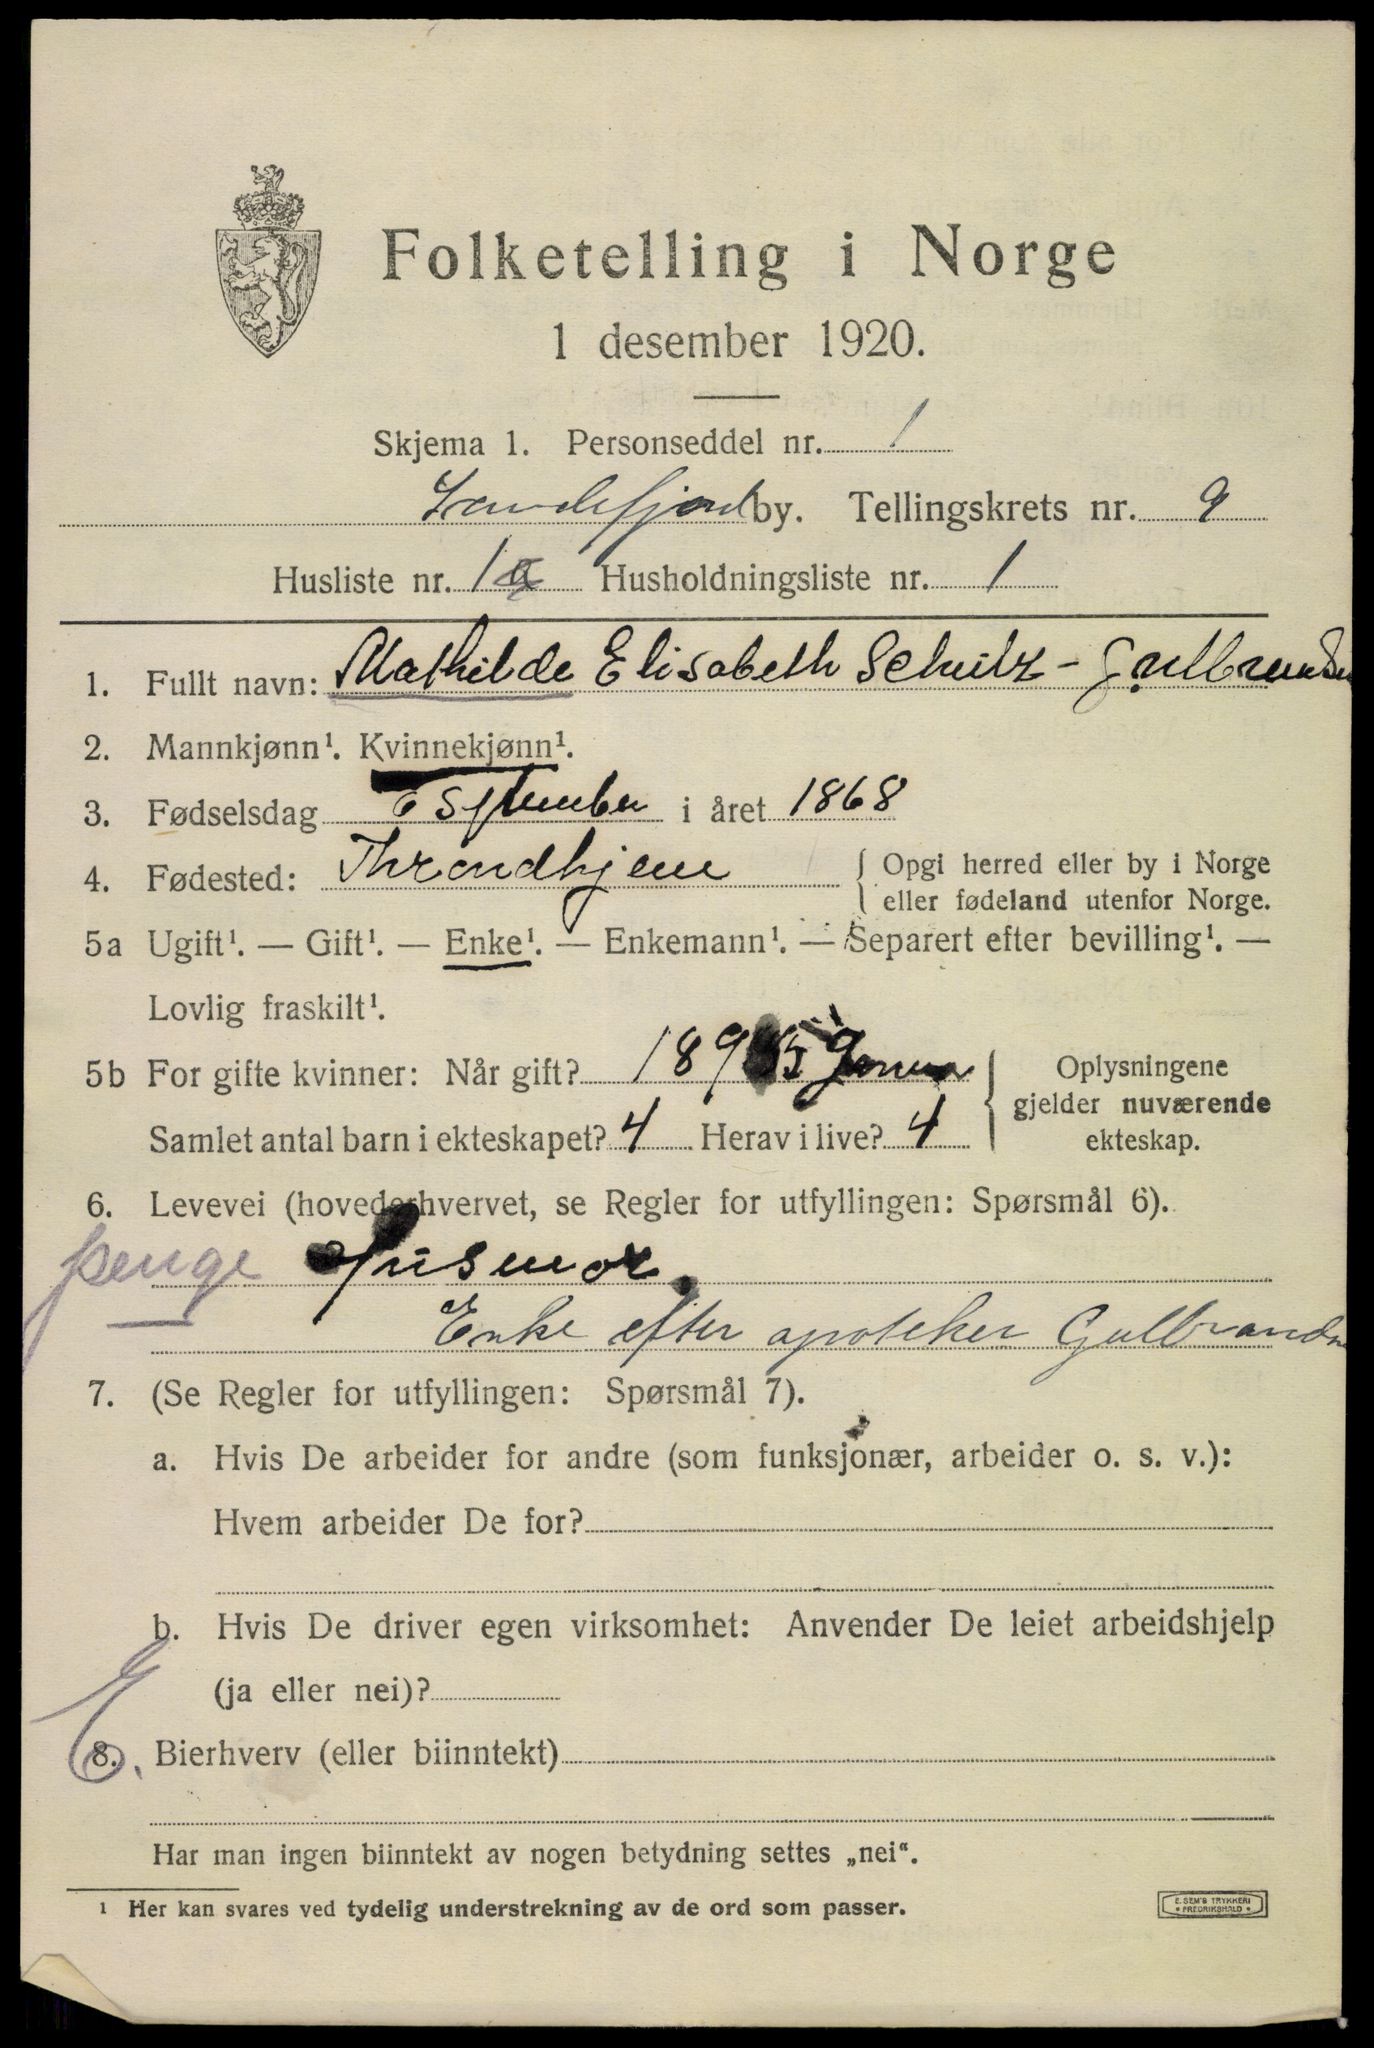 Folketelling i Norge
1 desember 1920.
Skjema 1. Personseddel nr. 1
Sandefjord by. Tellingskrets nr. 9
Husliste nr. 1a Husholdningsliste nr. 1
1. Fullt navn: Mathilde Elisabeth Schultz - Gulbrandsen
2. Mannkjønn¹. Kvinnekjønn¹.
3. Fødselsdag 6 September i året 1868
4. Fødested: Throndhjem { Opgi herred eller by i Norge
eller fødeland utenfor Norge.
5a Ugift¹. — Gift¹. — Enke¹. — Enkemann¹. — Separert efter bevilling¹. —
Lovlig fraskilt¹.
5b For gifte kvinner: Når gift? 1895 { Oplysningene
gjelder nuværende
Samlet antal barn i ekteskapet? 4 Herav i live? 4 ekteskap.
6. Levevei (hovederhvervet, se Regler for utfyllingen: Spørsmål 6).
penge Husmor
Enke efter apoteker Gulbrandsen
7. (Se Regler for utfyllingen: Spørsmål 7).
a. Hvis De arbeider for andre (som funksjonær, arbeider o. s. v.):
Hvem arbeider De for?
b. Hvis De driver egen virksomhet: Anvender De leiet arbeidshjelp
(ja eller nei)?
8. Bierhverv (eller biinntekt)
Har man ingen biinntekt av nogen betydning settes „nei“.
¹ Her kan svares ved tydelig understrekning av de ord som passer.
E. SEM'S TRYKKERI
* FREDRIKSHALD *